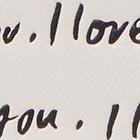 u. I love
you. I l